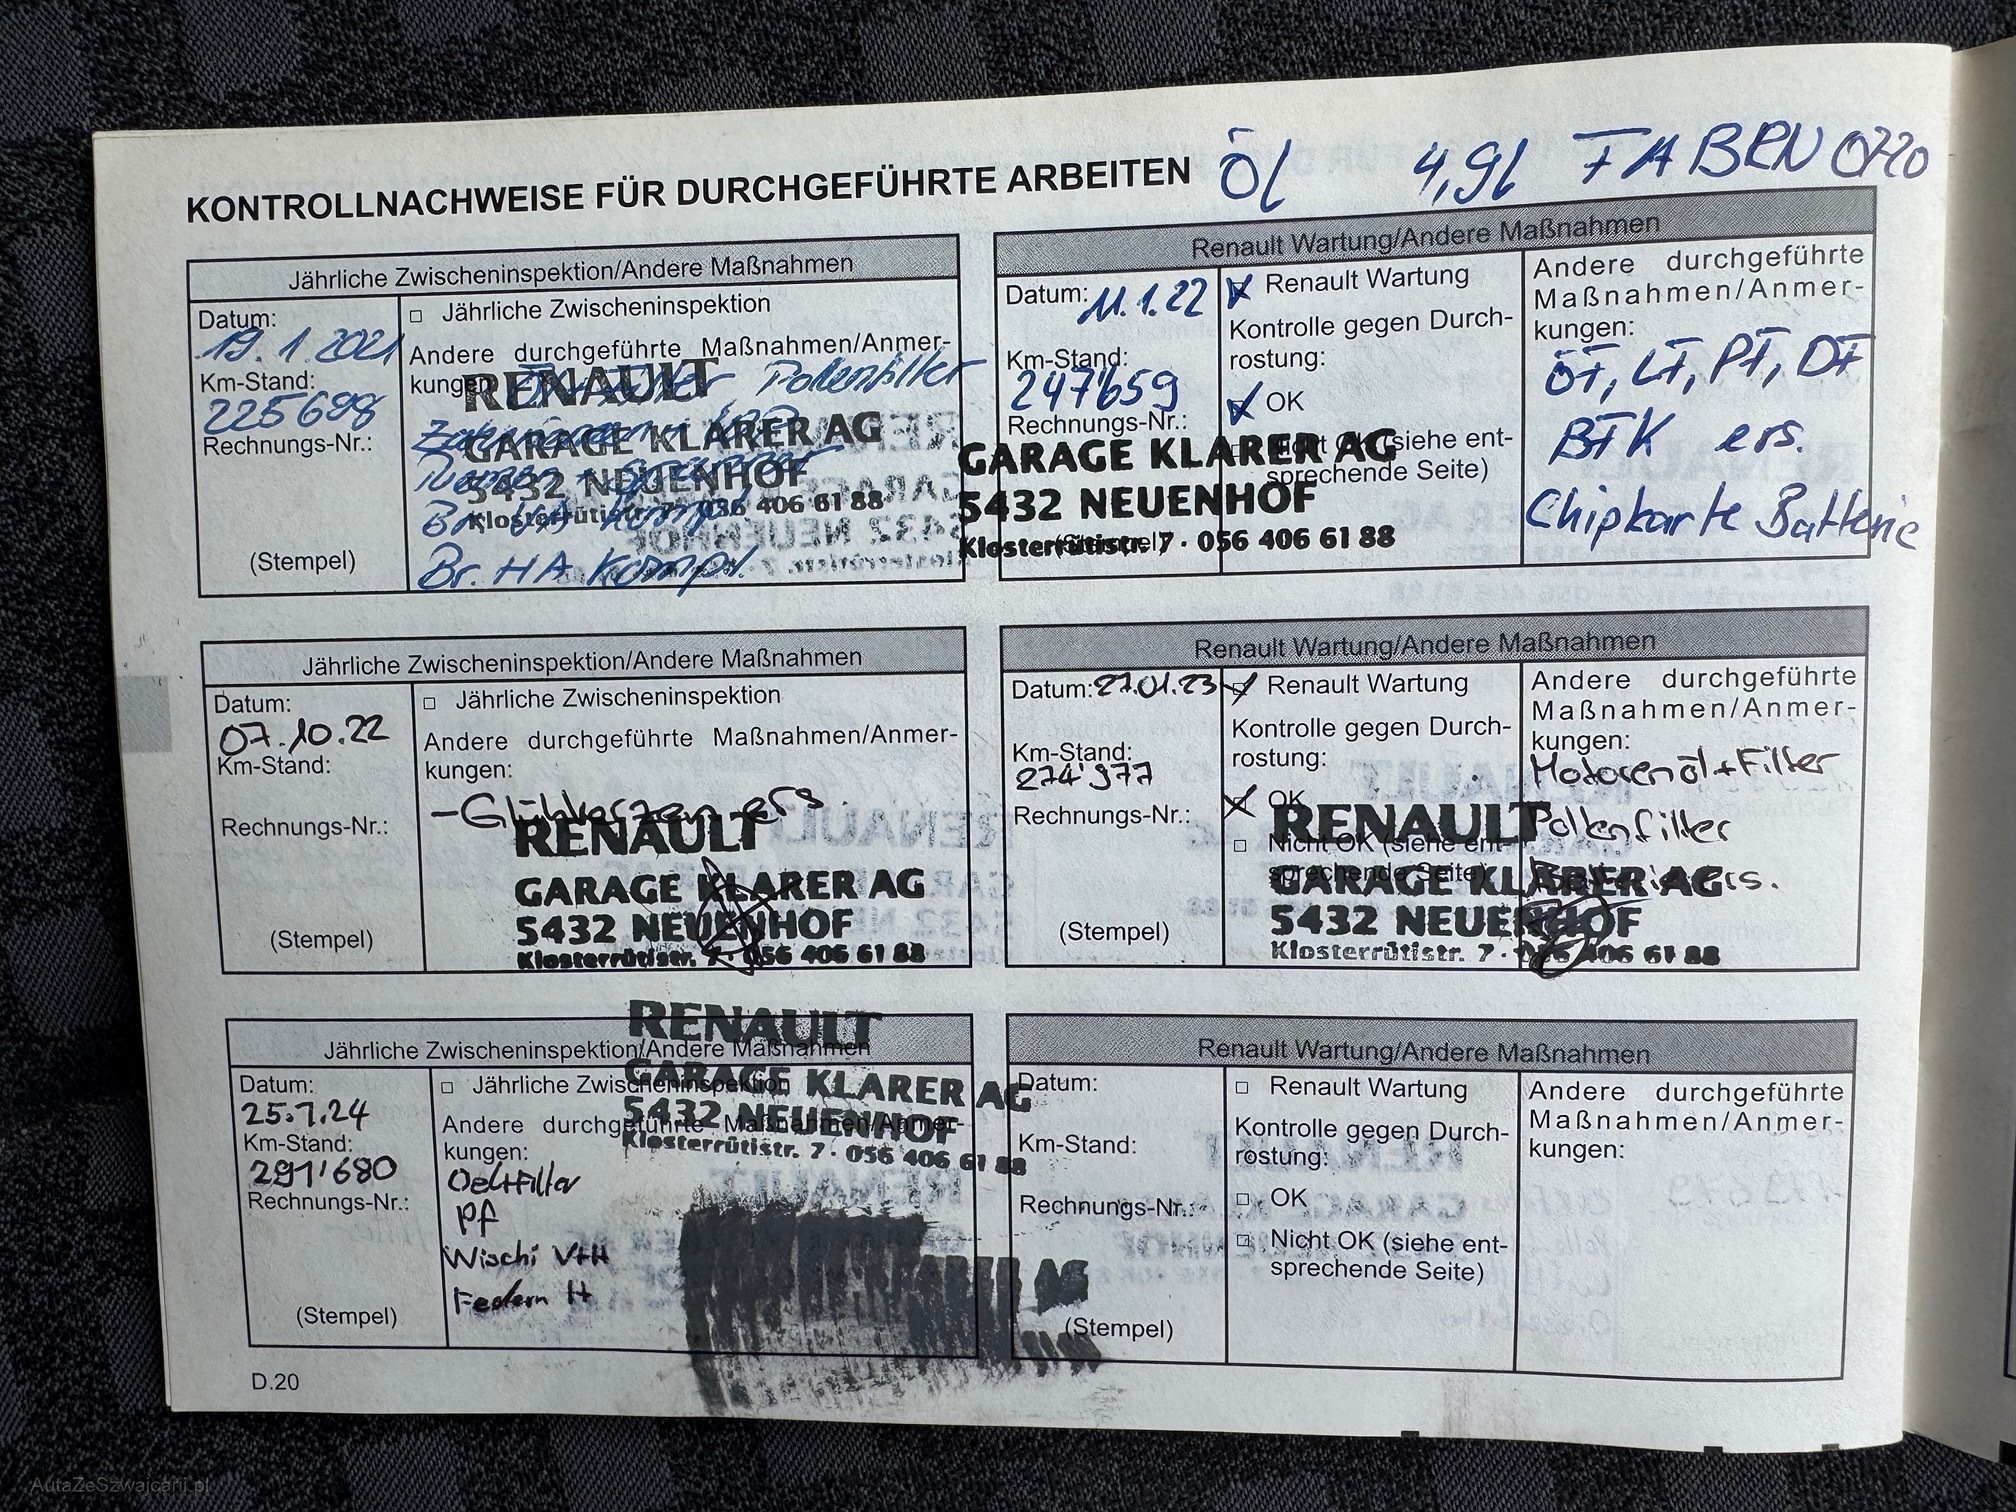 KONTROLLNACHWEISE FÜR DURCHGEFÜHRTE ARBEITEN
Öl 4,9l FABRN 0720
Jährliche Zwischeninspektion/Andere Maßnahmen
Datum:
19.1.2021
Km-Stand:
225688
Rechnungs-Nr.:
(Stempel)
□ Jährliche Zwischeninspektion
Andere durchgeführte Maßnahmen/Anmer-
kungen:
Pollenfilter
Br. HA kompl.
RENAULT
GARAGE KLARER AG
5432 NEUENHOF
Klosterrütistr. 7 · 056 406 61 88
Renault Wartung/Andere Maßnahmen
Datum: 11.1.22
Km-Stand:
247'659
Rechnungs-Nr.:
(Stempel)
Renault Wartung
Kontrolle gegen Durch-
rostung:
OK
Nicht OK (siehe ent-
sprechende Seite)
GARAGE KLARER AG
5432 NEUENHOF
Klosterrütistr. 7 · 056 406 61 88
Andere durchgeführte
Maßnahmen/Anmer-
kungen:
ÖF, LF, PF, DF
BFK ers.
Chipkarte Batterie
Jährliche Zwischeninspektion/Andere Maßnahmen
Datum:
07.10.22
Km-Stand:
Rechnungs-Nr.:
(Stempel)
□ Jährliche Zwischeninspektion
Andere durchgeführte Maßnahmen/Anmer-
kungen:
-Glühkerzen ers.
RENAULT
GARAGE KLARER AG
5432 NEUENHOF
Klosterrütistr. 7 · 056 406 61 88
Renault Wartung/Andere Maßnahmen
Datum: 27.01.23
Km-Stand:
274'977
Rechnungs-Nr.:
(Stempel)
Renault Wartung
Kontrolle gegen Durch-
rostung:
OK
□ Nicht OK (siehe ent-
sprechende Seite)
RENAULT
GARAGE KLARER AG
5432 NEUENHOF
Klosterrütistr. 7 · 056 406 61 88
Andere durchgeführte
Maßnahmen/Anmer-
kungen:
Motorenöl+Filter
Pollenfilter
ers.
Jährliche Zwischeninspektion/Andere Maßnahmen
Datum:
25.7.24
Km-Stand:
291'680
Rechnungs-Nr.:
(Stempel)
□ Jährliche Zwischeninspektion
Andere durchgeführte Maßnahmen/Anmer-
kungen:
Oel+Filter
Pf
Wischi V+H
Federn H
RENAULT
GARAGE KLARER AG
5432 NEUENHOF
Klosterrütistr. 7 · 056 406 61 88
AG
Renault Wartung/Andere Maßnahmen
Datum:
Km-Stand:
Rechnungs-Nr.:
(Stempel)
□ Renault Wartung
Kontrolle gegen Durch-
rostung:
□ OK
□ Nicht OK (siehe ent-
sprechende Seite)
Andere durchgeführte
Maßnahmen/Anmer-
kungen:
D.20
AutaZeSzwajcarii.pl